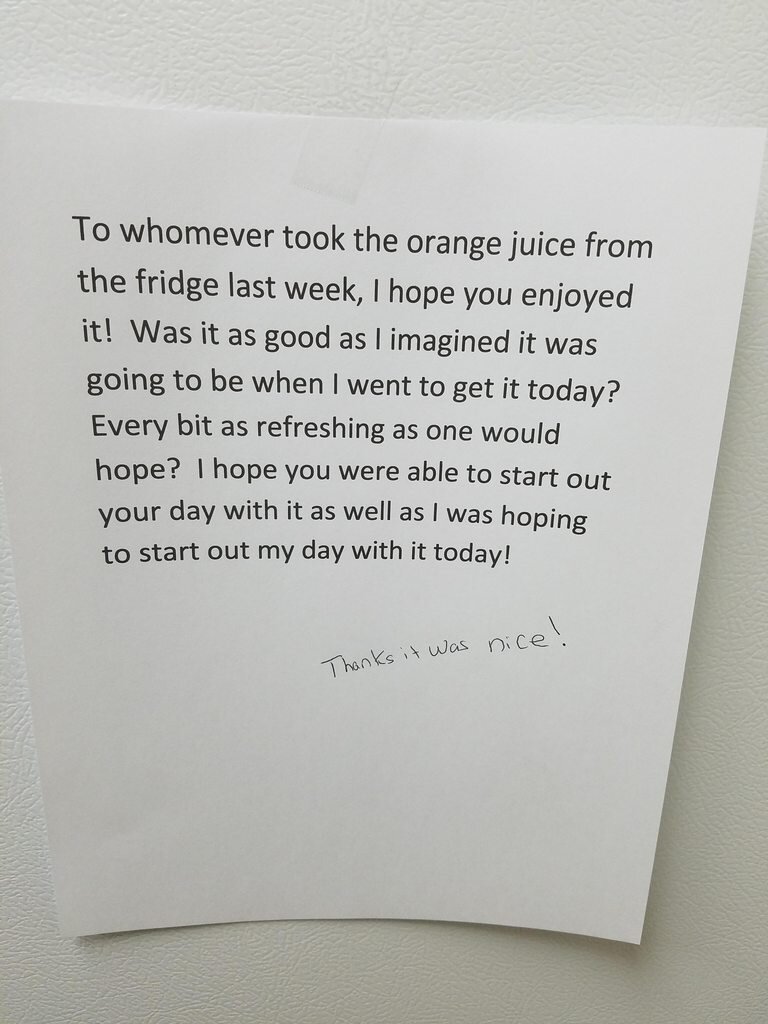 To whomever took the orange juice from
the fridge last week, I hope you enjoyed
it!  Was it as good as I imagined it was
going to be when I went to get it today?
Every bit as refreshing as one would
hope?  I hope you were able to start out
your day with it as well as I was hoping
to start out my day with it today!
Thanks it was nice!